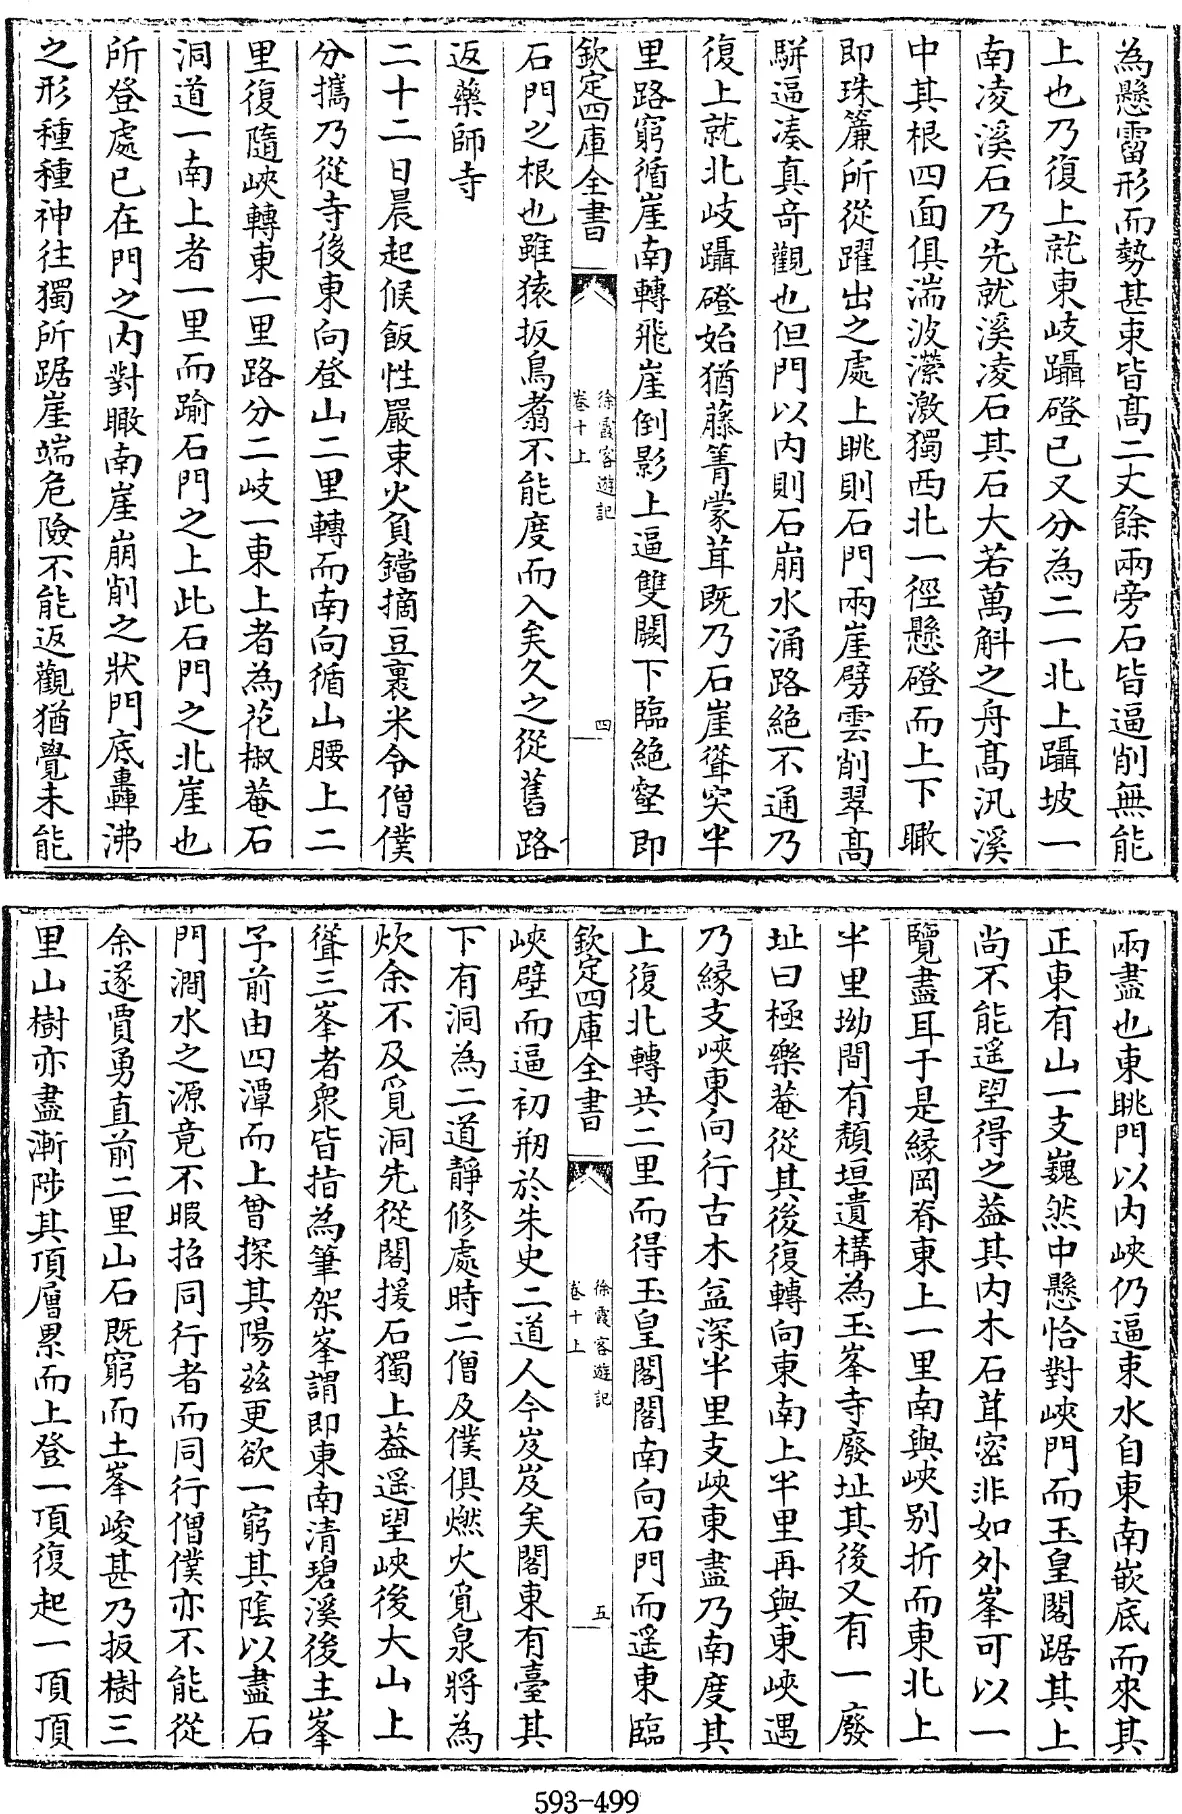 為懸霤形而勢甚束皆髙二丈餘兩旁石皆逼削無能
上也乃復上就東岐躡磴已又分為二一北上躡坡一
南凌溪石乃先就溪凌石其石大若萬斛之舟髙汎溪
中其根四面俱湍波瀠激獨西北一徑懸磴而上下瞰
即珠簾所從躍出之處上眺則石門兩崖劈雲削翠髙
駢逼湊真竒觀也但門以内則石崩水涌路絶不通乃
復上就北岐躡磴始猶藤箐蒙茸既乃石崖聳突半
里路窮循崖南轉飛崖倒影上逼雙闕下臨絶壑即
欽定四庫全書
徐霞客遊記
卷十上
四
石門之根也雖猿扳鳥翥不能度而入矣久之從舊路
返藥師寺
二十二日晨起候飯性嚴束火負鐺摘豆裹米令僧僕
分攜乃從寺後東向登山二里轉而南向循山腰上二
里復隨峽轉東一里路分二岐一東上者為花椒菴石
洞道一南上者一里而踰石門之上此石門之北崖也
所登處已在門之内對瞰南崖崩削之狀門底轟沸
之形種種神往獨所踞崖端危險不能返觀猶覺未能
兩盡也東眺門以内峽仍逼束水自東南嵌底而來其
正東有山一支巍然中懸恰對峽門而玉皇閣踞其上
尚不能遥望得之葢其内木石茸密非如外峯可以一
覽盡耳于是縁岡脊東上一里南與峽别折而東北上
半里坳間有頽垣遺構為玉峯寺廢址其後又有一廢
址曰極樂菴從其後復轉向東南上半里再與東峽遇
乃縁支峽東向行古木益深半里支峽東盡乃南度其
上復北轉共二里而得玉皇閣閣南向石門而遥東臨
欽定四庫全書
徐霞客遊記
卷十上
五
峽壁而逼初剏於朱史二道人今岌岌矣閣東有臺其
下有洞為二道靜修處時二僧及僕俱燃火覓泉將為
炊余不及覓洞先從閣援石獨上葢遥望峽後大山上
聳三峯者衆皆指為筆架峯謂即東南清碧溪後主峯
予前由四潭而上曾探其陽茲更欲一窮其隂以盡石
門澗水之源竟不暇招同行者而同行僧僕亦不能從
余遂賈勇直前二里山石既窮而土峯峻甚乃扳樹三
里山樹亦盡漸陟其頂層累而上登一頂復起一頂頂
593-499